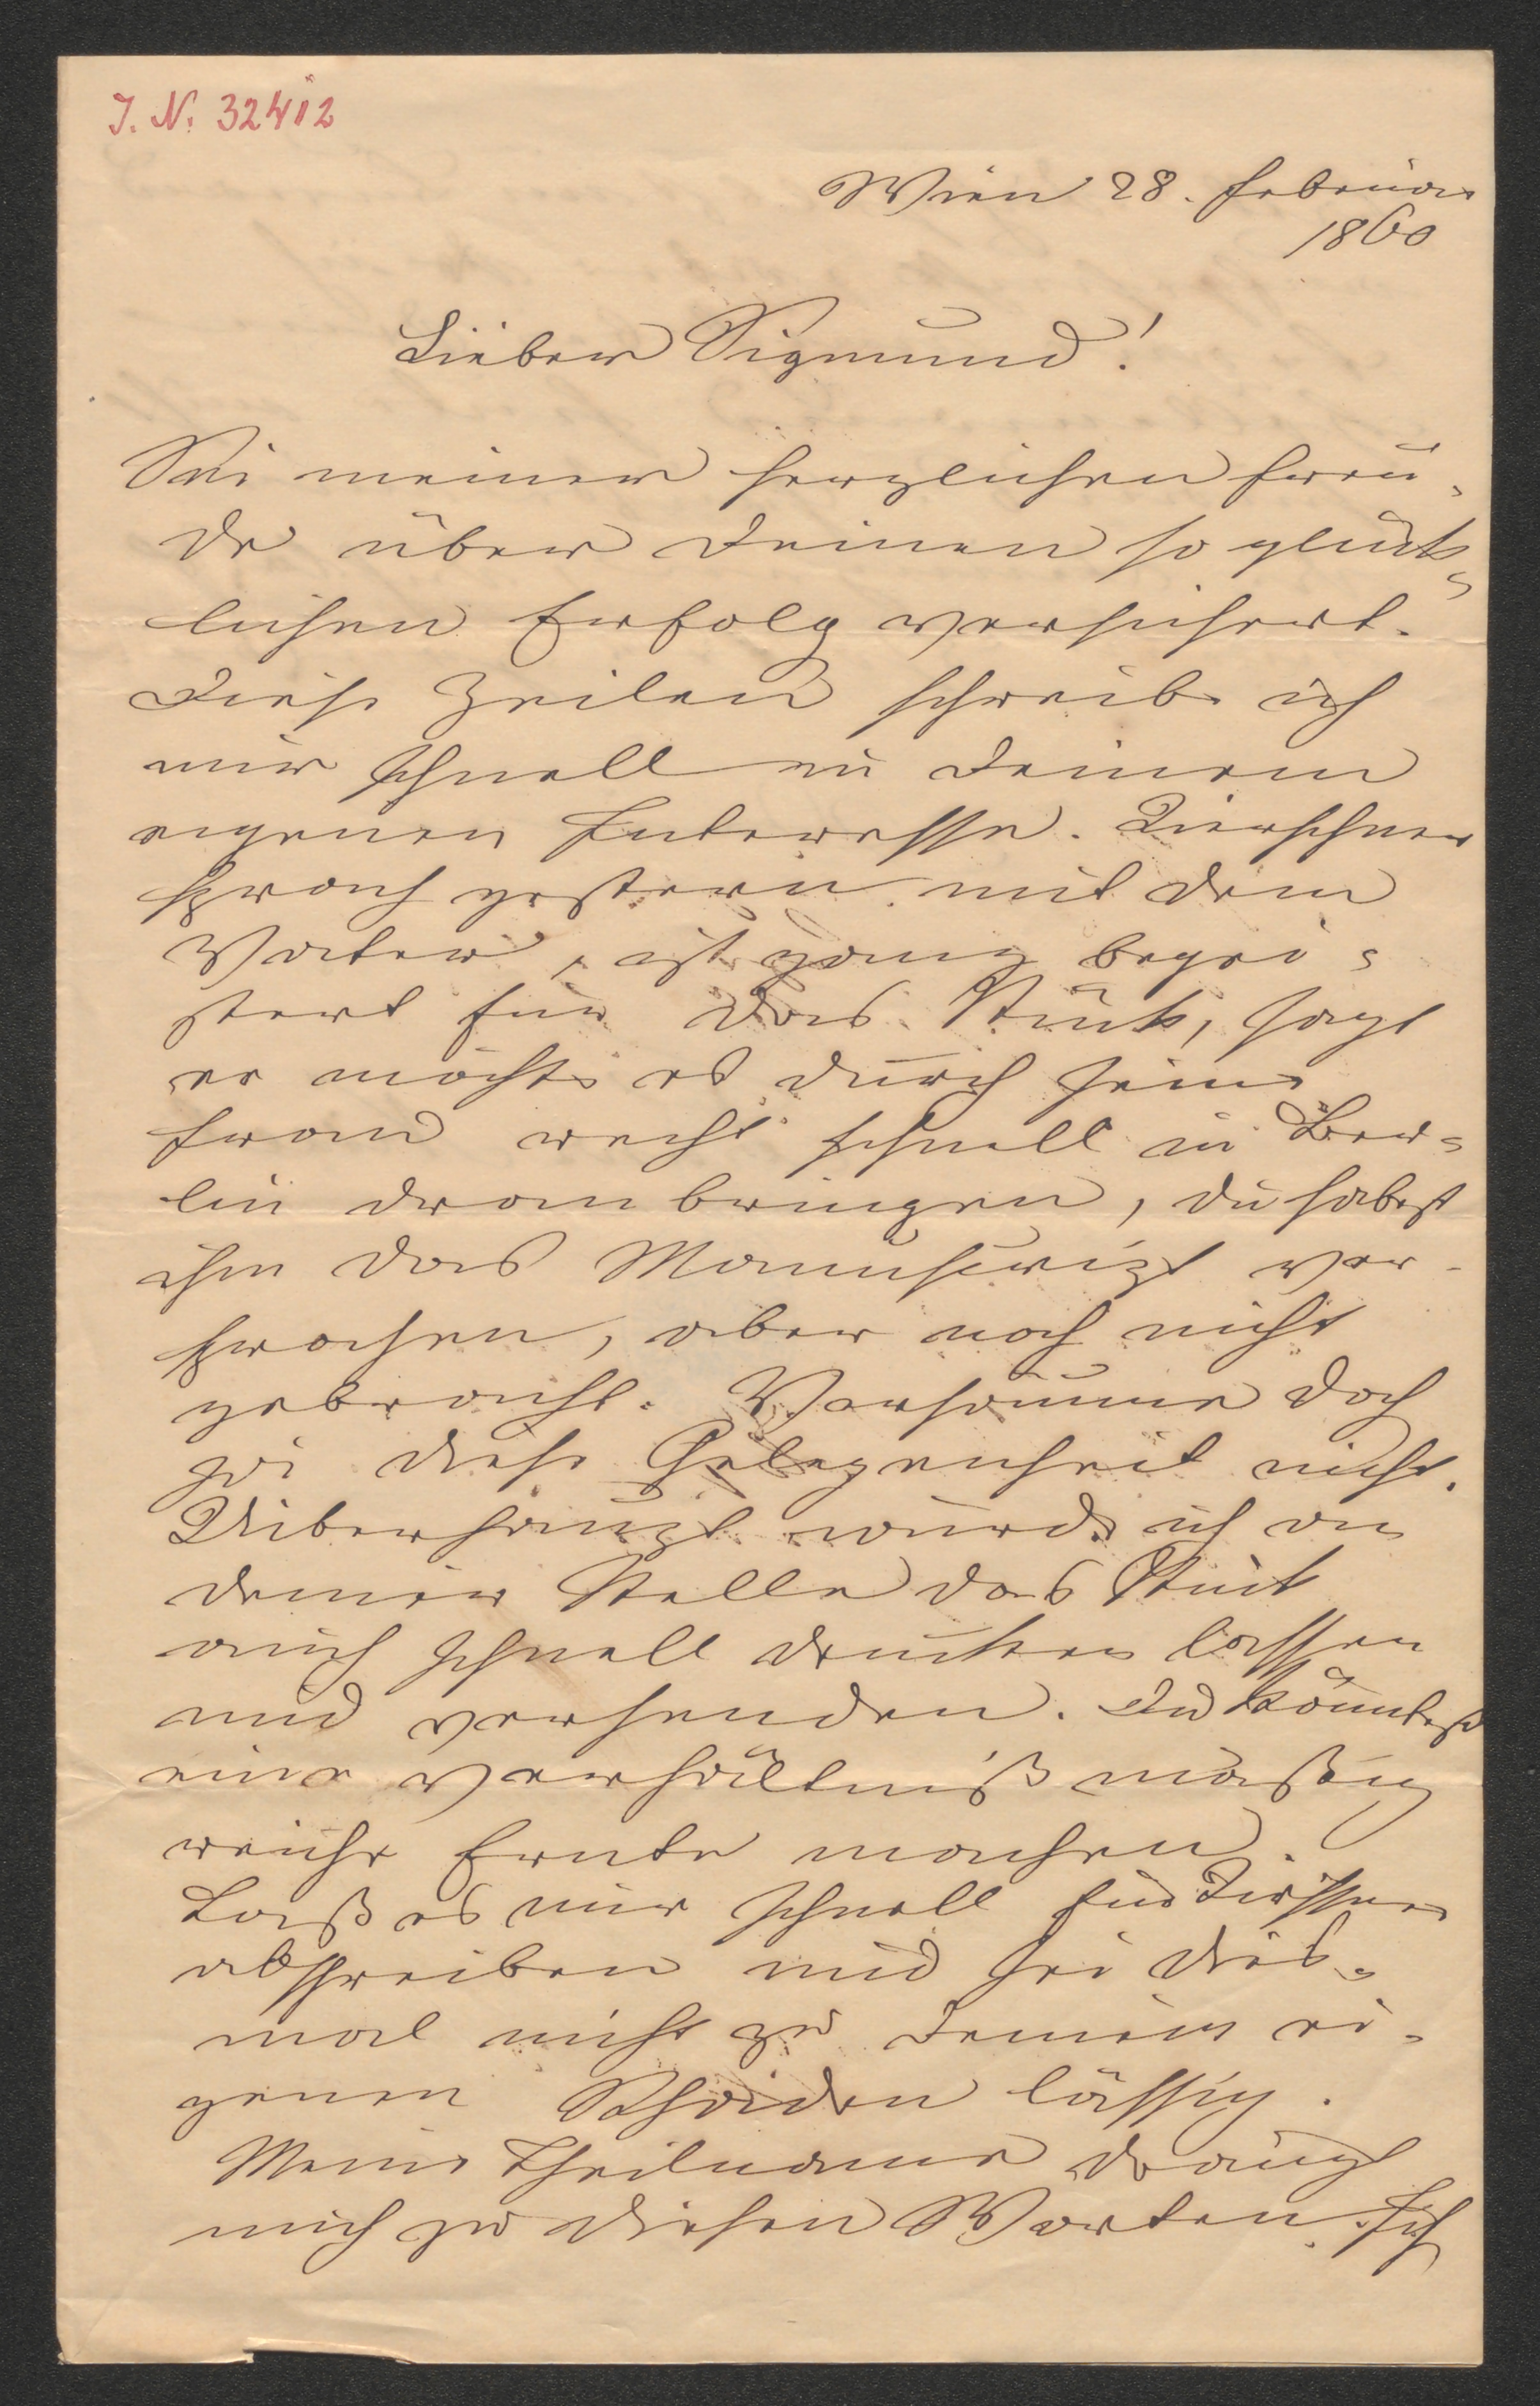 J. N. 32412
Wien 28. Februar
1860
Lieber Sigmund!
Sei meiner herzlichen Freu-
de über Deinen so glück-
lichen Erfolg versichert.
Diese Zeilen schreibe ich
nur schnell in Deinem
eigenen Interesse.
sprach gestern mit dem
Vater, ist ganz begei-
stert für das Stück, sagt
er möchte es durch seine
Frau recht schnell in Ber-
lin dran bringen, du habest
ihm das Manuscript ver-
sprochen, aber noch nicht
gebracht. Versäume doch
ja diese Gelegenheit nicht.
Uiberhaupt würde ich an
deiner Stelle das Stück
auch schnell drucken lassen
und versenden. Du könntest
eine verhältnißmäßig
reiche Ernte machen.
Laß es nur schnell für
abschreiben und sei dies-
mal nicht zu Deinem ei-
genen Schaden lässig.
Meine Theilname drängt
mich zu diesen Worten. Ich